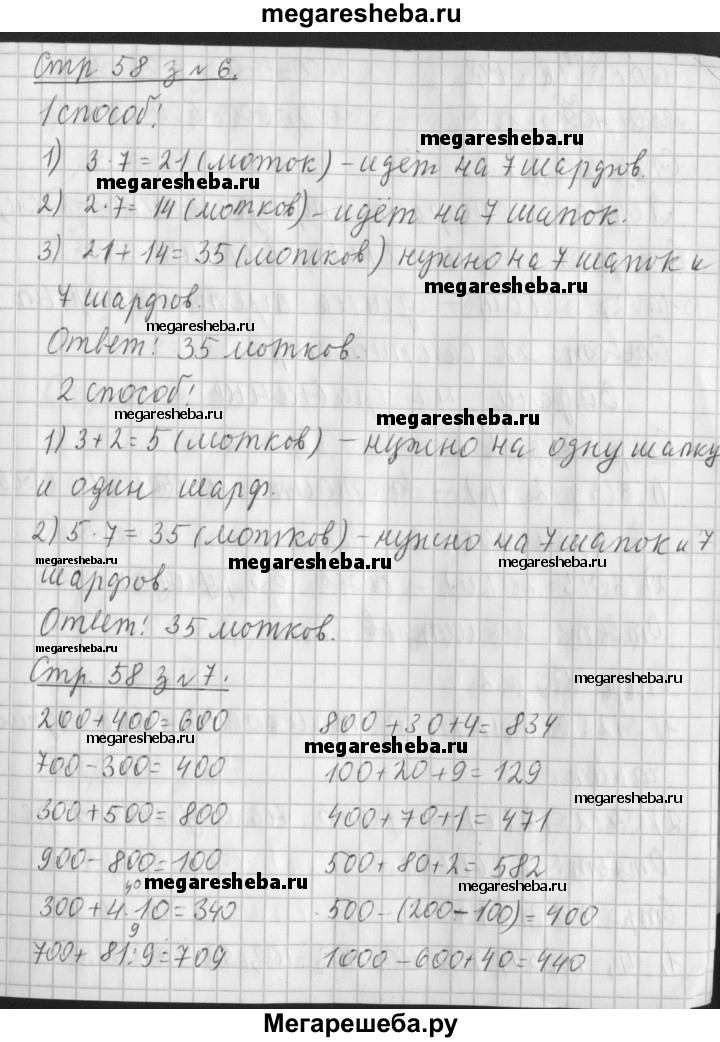 megaresheba.ru
Стр 58 з № 6.
1 способ!
megaresheba.ru
1) 3·7=21 (моток) - идёт на 7 шарфов.
megaresheba.ru
2) 2·7=14 (мотков) - идёт на 7 шапок.
3) 21+14=35 (мотков) нужно на 7 шапок и
megaresheba.ru
7 шарфов.
megaresheba.ru
Ответ! 35 мотков.
2 способ!
megaresheba.ru megaresheba.ru
1) 3+2=5 (мотков) - нужно на одну шапку
и один шарф.
2) 5·7=35 (мотков) - нужно на 7 шапок и 7
megaresheba.ru megaresheba.ru megaresheba.ru
шарфов.
Ответ! 35 мотков.
megaresheba.ru
Стр. 58 з № 7.
megaresheba.ru
200+400=600 800+30+4=834
megaresheba.ru megaresheba.ru
700-300=400 100+20+9=129
megaresheba.ru
300+500=800 400+70+1=471
900-800=100 500+80+2=582
40
megaresheba.ru megaresheba.ru
300+4·10=340 500-(200-100)=400
9
700+81:9=709 1000-600+40=440
Мегарешеба.ру